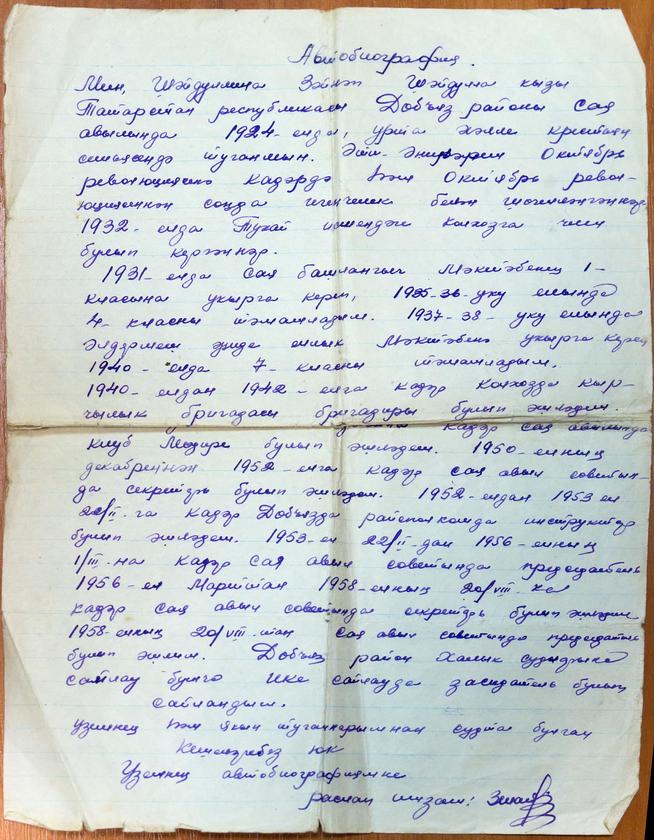 Автобиография.
Мин, Шәйдуллина Зәйнәп Шәйдулла кызы
Татарстан республикасы Добъяз районы Сая
авылында 1924-елда, урта хәлле крестьян
семьясендә туганмын. Әти-әниләрем Октябрь
революциясенә кадәрдә һәм Октябрь револ-
юциясеннән соңда игенчелек белән шөгелләнгәннәр
1932-елда Тукай исемендәге колхозга член
булып кергәннәр.
1931-елда Сая башлангыч мәктәбенең 1-
класына укырга кереп, 1935-36-уку елында
4-класны тәмамладым. 1937-38-уку елында
җиде еллык мәктәбенә укырга кереп
1940-елда 7-класны тәмамладым.
1940-елдан 1942-елга кадәр колхозда кыр-
чылык бригадасы бригадиры булып эшләдем.
кадәр Сая авылында
клуб мөдире булып эшләдем. 1950-елның
декабреннән 1952-елга кадәр Сая авыл советын-
да секретарь булып эшләдем. 1952-елдан 1953 ел
22/II-га кадәр Добъязда райсполкомда инструктор
булып эшләдем. 1953-ел 22/II-дан 1956-елның
1/III-на кадәр Сая авыл советында председатель
1956-ел Марттан 1958-елның 20/VIII-нә
кадәр Сая авыл советында секретарь булып эшләдем
1958-елның 20/VIII-тан Сая авыл советында председатель
булып эшлим. Добъяз район Халык судьдына
сайлау буенча ике сайлауда заседатель булып
сайландым.
Үземнең һәм якын туганнарымнан судта булган
кешеләребез юк
Үземнең автобиографиямне
раслап имзам: